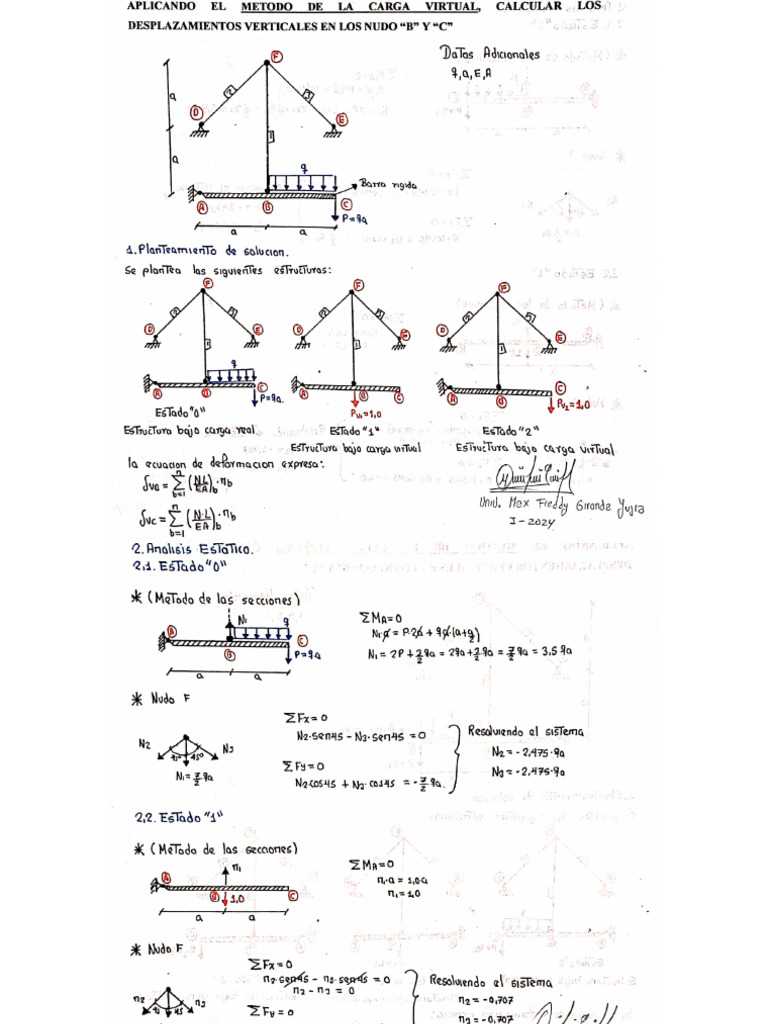 APLICANDO EL METODO DE LA CARGA VIRTUAL, CALCULAR LOS
DESPLAZAMIENTOS VERTICALES EN LOS NUDO "B" Y "C"
Datos Adicionales
q, a, E, A
F
2
3
D
E
1
a
a
q
Barra rigida
A
B
C
P=qa
a
a
1. Planteamiento de solucion.
Se plantea las siguientes estructuras:
F
2
3
D
E
1
q
A
B
C
P=qa.
Estado "0"
Estructura bajo carga real
F
2
3
D
E
1
A
B
C
Pv1=1,0
Estado "1"
Estructura bajo carga virtual
F
2
3
D
E
1
A
B
C
Pv2=1,0
Estado "2"
Estructura bajo carga virtual
la ecuacion de deformacion expresa:
δVB = Σ (N·L/EA)b · nb
δVC = Σ (N·L/EA)b · nb
Univ. Max Freddy Giranda Yujra
I-2024
2. Analisis Estatico.
2,1. Estado "0"
* (Metodo de las secciones)
N1
q
A
B
C
P=qa
a
a
ΣMA=0
N1·a = P·2a + q·a·(a+a/2)
N1 = 2P + 3/2 qa = 2qa + 3/2 qa = 7/2 qa = 3,5 qa
* Nudo F
N2
45°
45°
N3
N1 = 7/2 qa
ΣFx=0
N2·sen45 - N3·sen45 = 0
ΣFy=0
N2cos45 + N3·cos45 = -7/2 qa.
Resolviendo el sistema
N2 = -2,475·qa
N3 = -2,475·qa
2,2. Estado "1"
* (Metodo de las secciones)
n1
A
B
1,0
C
a
a
ΣMA=0
n1·a = 1,0·a
n1 = 1,0
* Nudo F
n2
45
45
n3
ΣFx=0
n2·sen45 - n3·sen45 = 0
n2 - n3 = 0
ΣFy=0
Resolviendo el sistema
n2 = -0,707
n3 = -0,707